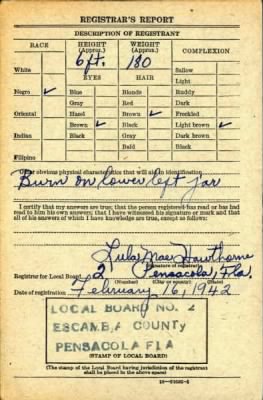 REGISTRAR'S REPORT
DESCRIPTION OF REGISTRANT
RACE HEIGHT (Approx.) WEIGHT (Approx.) COMPLEXION
6 ft. 180
White EYES HAIR Sallow
Light
Negro ✓ Blue Blonde Ruddy
Gray Red Dark
Oriental Hazel Brown ✓ Freckled
Brown ✓ Black Light brown ✓
Indian Black Gray Dark brown
Bald Black
Filipino
Other obvious physical characteristics that will aid in identification
Burn on lower left jar
I certify that my answers are true; that the person registered has read or has had
read to him his own answers; that I have witnessed his signature or mark and that
all of his answers of which I have knowledge are true, except as follows:
Lula Mae Hawthorne
(Signature of registrar)
Registrar for Local Board 2 Pensacola, Fla.
(Number) (City or county) (State)
Date of registration February 16, 1942
LOCAL BOARD NO. 2
ESCAMBIA COUNTY
PENSACOLA FLA
(STAMP OF LOCAL BOARD)
(The stamp of the Local Board having jurisdiction of the registrant
shall be placed in the above space)